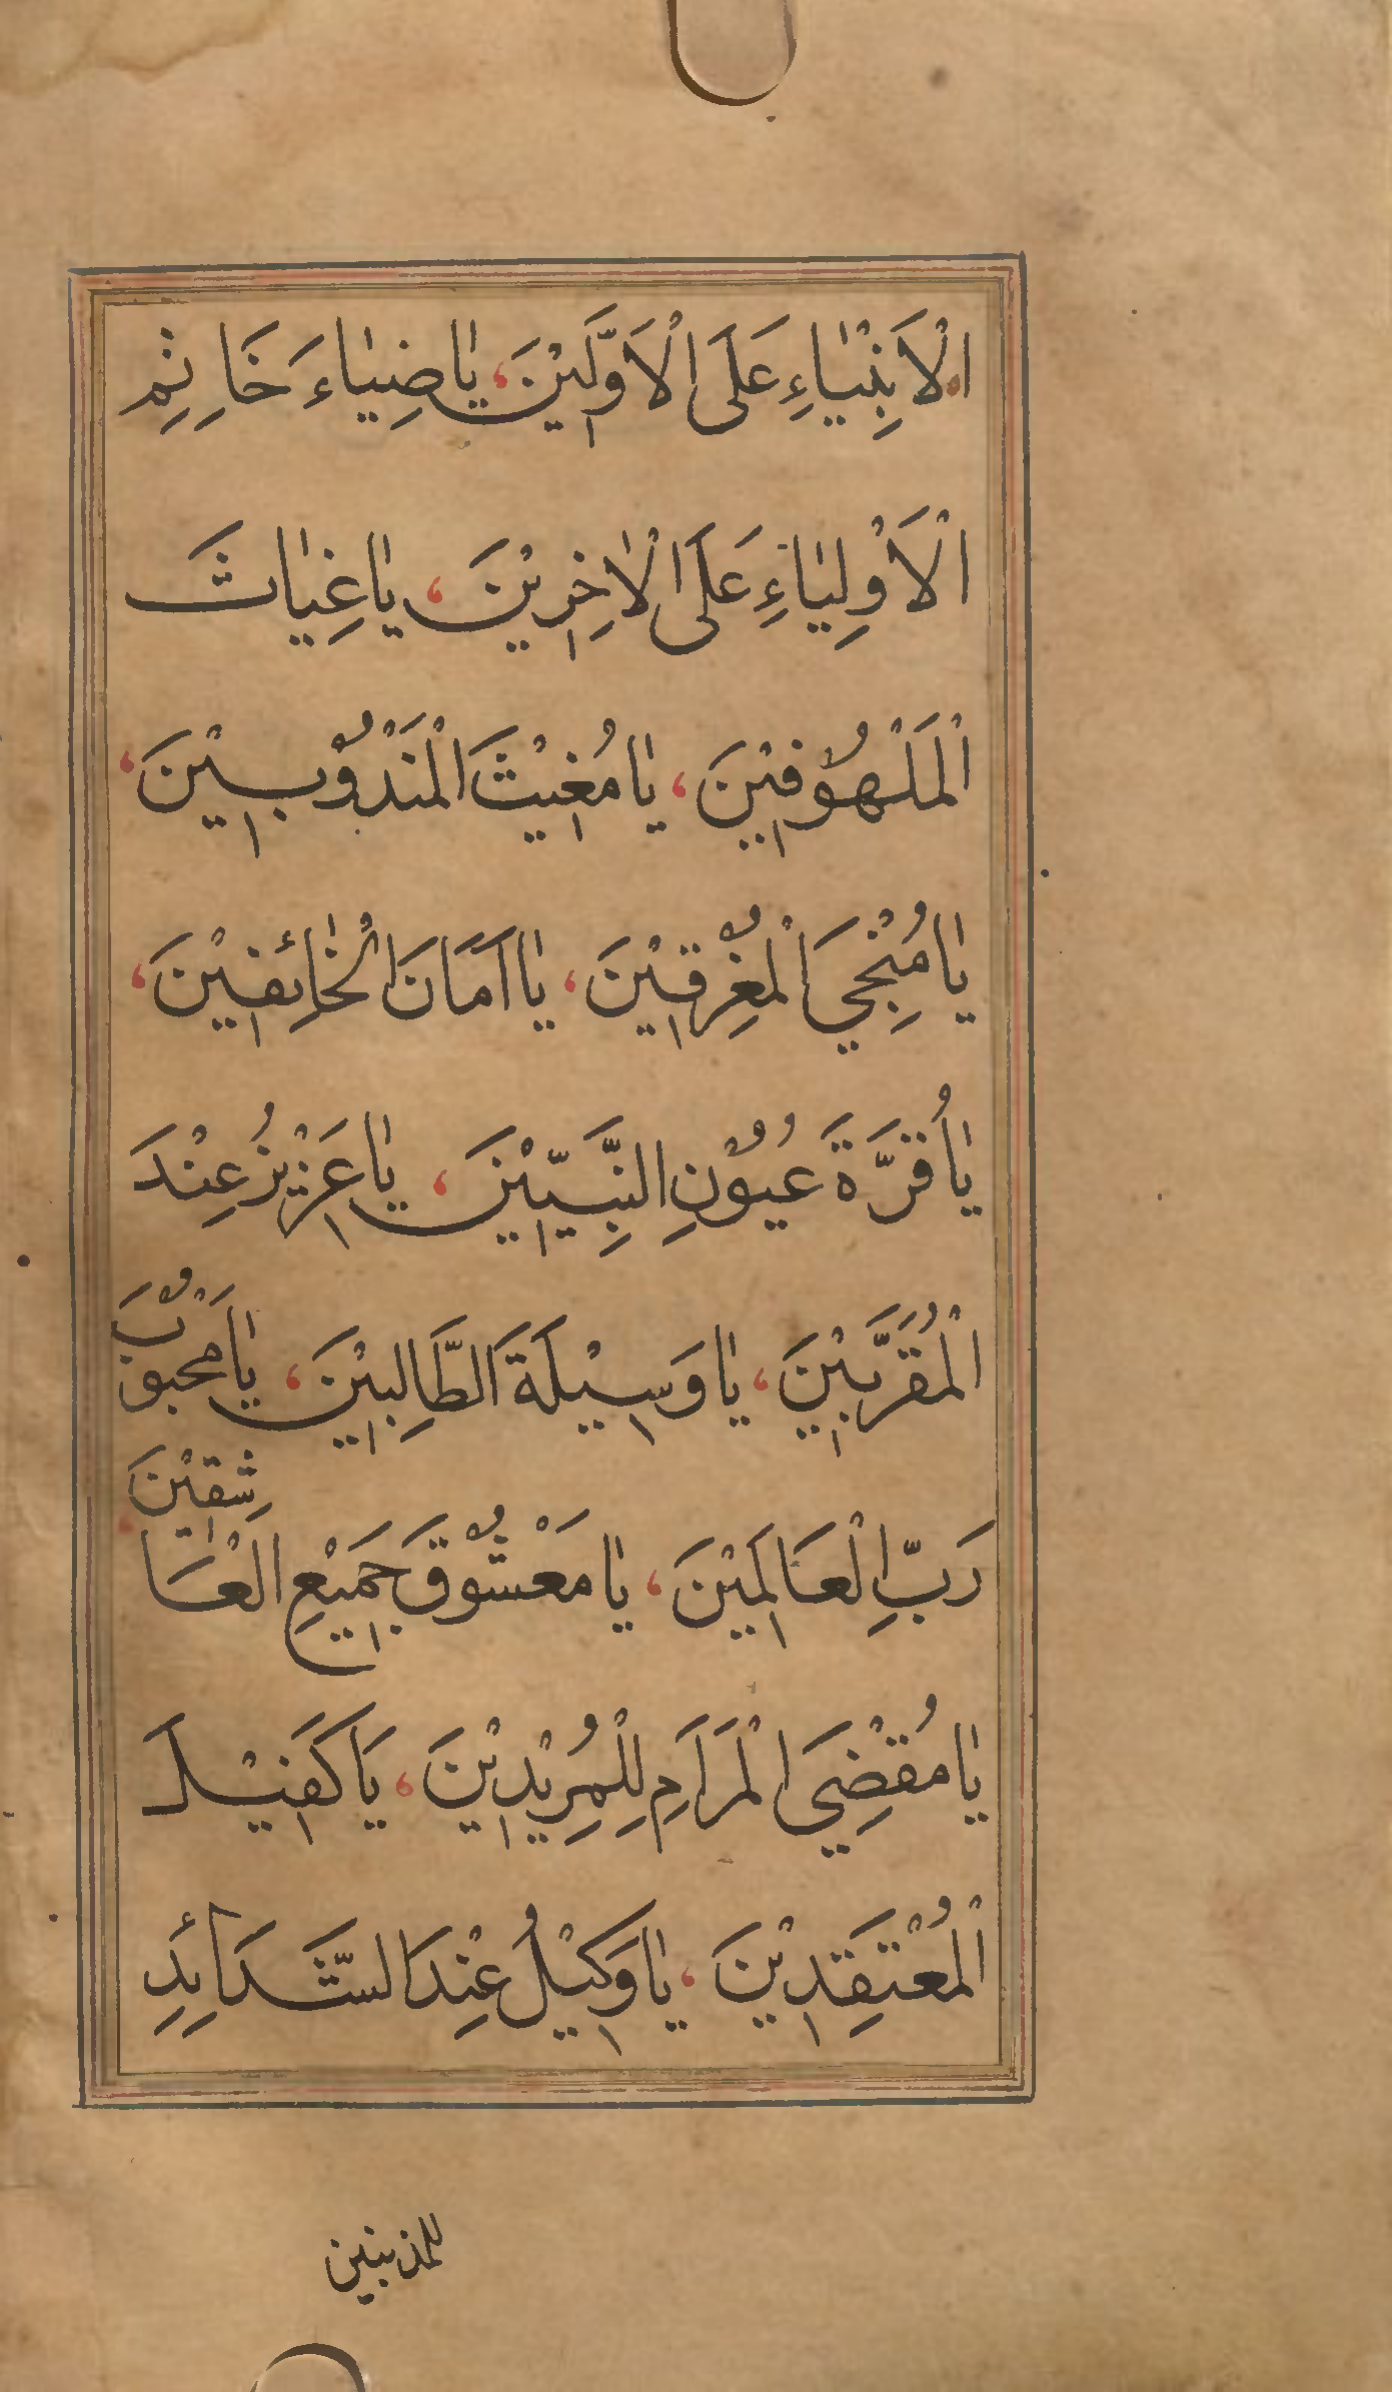 اَلْاَنْبِيَاءِ عَلَى الْاَوَّلَيْنَ، يَاضِيَاءَ خَاتِمِ
الْاَوْلِيَاءِ عَلَى الْاٰخِرِيْنَ، يَاغِيَاثَ
الْمَلْهُوْفِيْنَ، يَامُغِيْثَ الْمَنْدُوْبِيْنَ،
يَامُنْجِيَ الْمُغْرِقِيْنَ، يَااَمَانَ الْخَائِفِيْنَ،
يَاقُرَّةَ عُيُوْنِ النَّبِيّيْنَ، يَاعَزِيْزُ عِنْدَ
الْمُقَرَّبِيْنَ، يَاوَسِيْلَةَ الطَّالِبِيْنَ، يَامَحْبُوْبَ
رَبِّ الْعَالَمِيْنَ، يَامَعْشُوْقَ جَمِيْعِ الْعَاشِقِيْنَ
يَامُقْضِيَ الْمَرَامِ لِلْمُرِيْدِيْنَ، يَاكَفِيْلَ
الْمُعْتَقِدِيْنَ، يَاوَكِيْلُ عِنْدَ الشَّدَائِدِ
للمذنبين